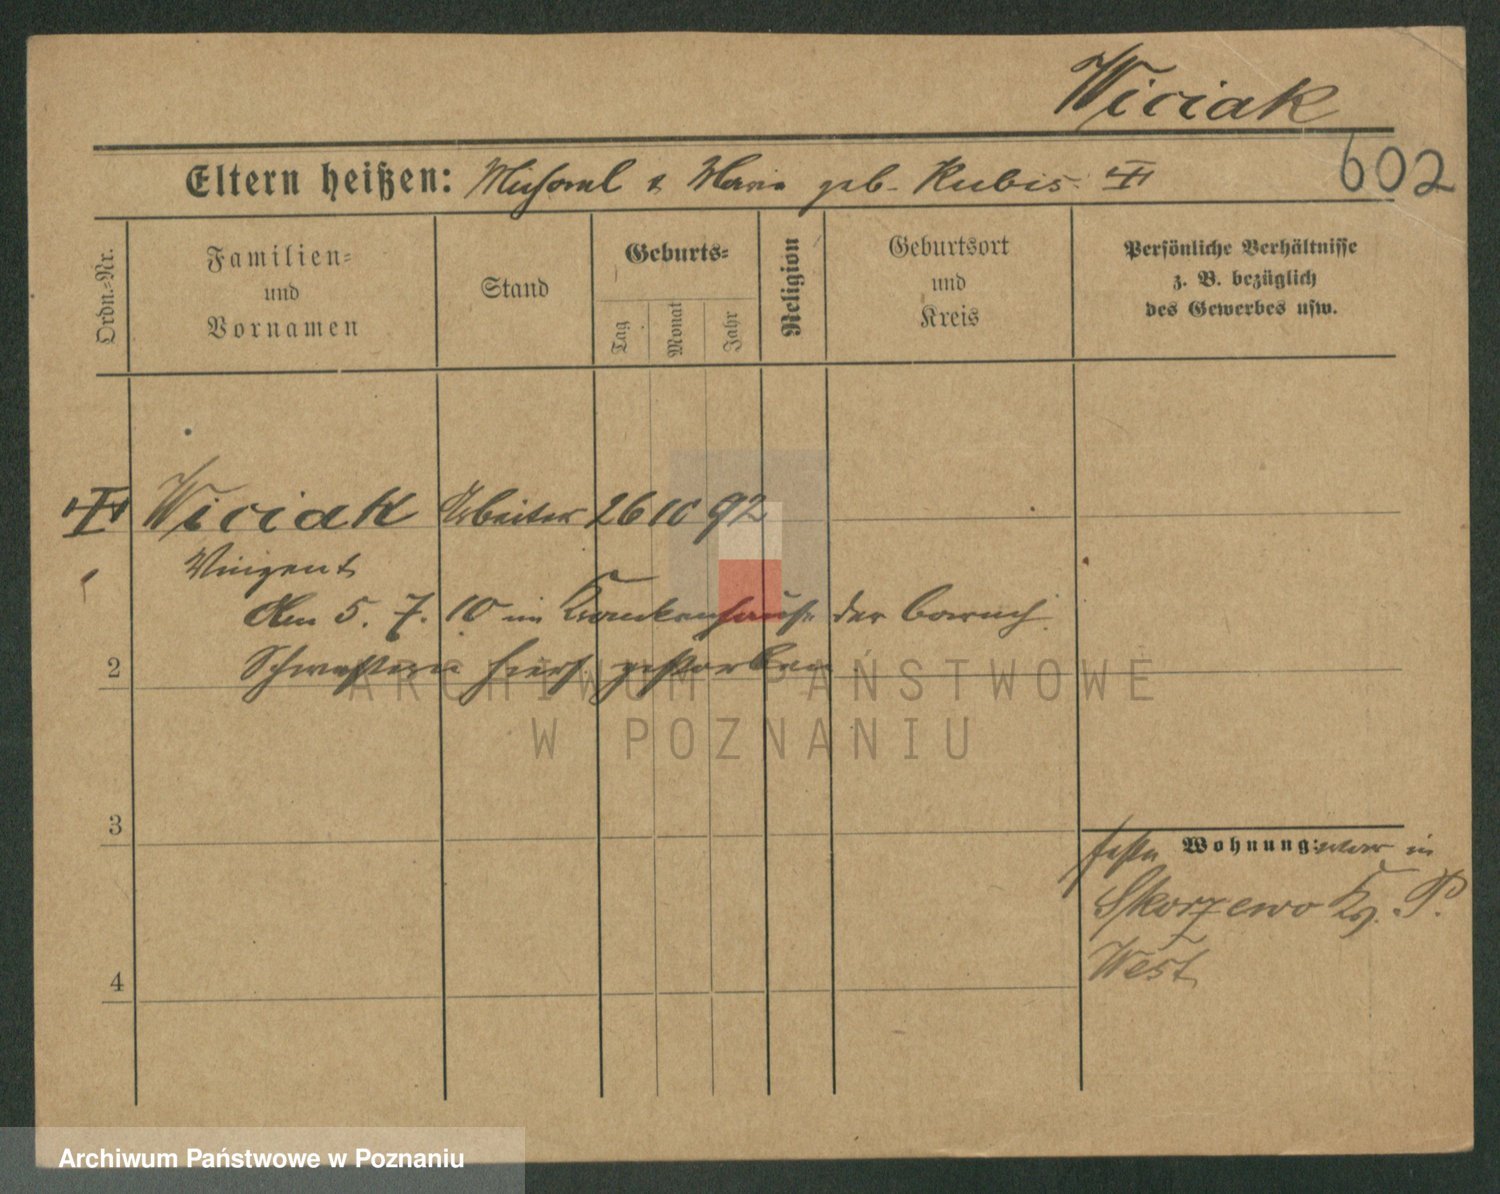 Wiciak
602
Eltern heißen: Michael & Maria geb. Kubis
Ordn.=Nr.
Familien=
und
Vornamen
Stand
Geburts=
Tag
Monat
Jahr
Religion
Geburtsort
und
Kreis
Persönliche Verhältnisse
z. B. bezüglich
des Gewerbes usw.
Wiciak Arbeiter 26 10 92
Vinzent
Am 5. 7. 10 im Krankenhause der barmh.
2 Schwestern hier gestorben
3
4
feste Wohnung: war in
Skorzewo Kr. P.
West
ARCHIWUM PAŃSTWOWE
W POZNANIU
Archiwum Państwowe w Poznaniu